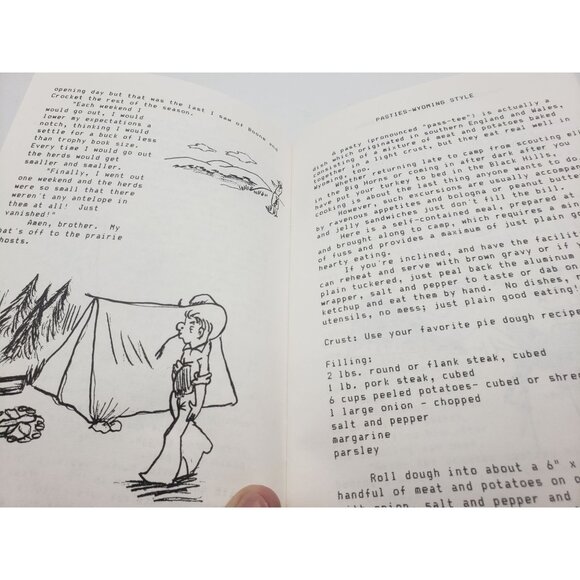 opening day but that was the last I saw of Boone and
Crocket the rest of the season.
"Each weekend I
would go out, I would
lower my expectations a
notch, thinking I would
settle for a buck of less
than trophy book size.
Every time I would go out
the herds would get
smaller and smaller.
"Finally, I went out
one weekend and the herds
were so small that there
weren't any antelope in
them at all! Just
vanished!"
Amen, brother. My
hat's off to the prairie
ghosts.
PASTIES-WYOMING STYLE
A pasty (pronounced "pass-tee") is actually a
dish which originated in southern England and Wales,
consisting of a mixture of meat and potatoes baked
together in a light crust, but they eat real well in
Wyoming too.
Whether returning late to camp from scouting el
in the Big Horns or coming in after dark after you
have put your turkey to bed in the Black Hills,
cooking is about the last thing anyone wants to do
However, such excursions are usually accompan
by ravenous appetites and bologna or peanut butte
and jelly sandwiches just don't fill the bill.
Here is a self-contained meal, prepared at
and brought along to camp, which requires a mini
of fuss and provides a maximum of just plain go
hearty eating.
If you're inclined, and have the facilit
can reheat and serve with brown gravy or if y
plain tuckered, just peal back the aluminum
wrapper, salt and pepper to taste or dab on
ketchup and eat them by hand. No dishes,
utensils, no mess; just plain good eating!
Crust: Use your favorite pie dough recipe
Filling:
2 lbs. round or flank steak, cubed
1 lb. pork steak, cubed
6 cups peeled potatoes- cubed or shre
1 large onion - chopped
salt and pepper
margarine
parsley
Roll dough into about a 6" x
handful of meat and potatoes on o
with onion, salt and pepper and